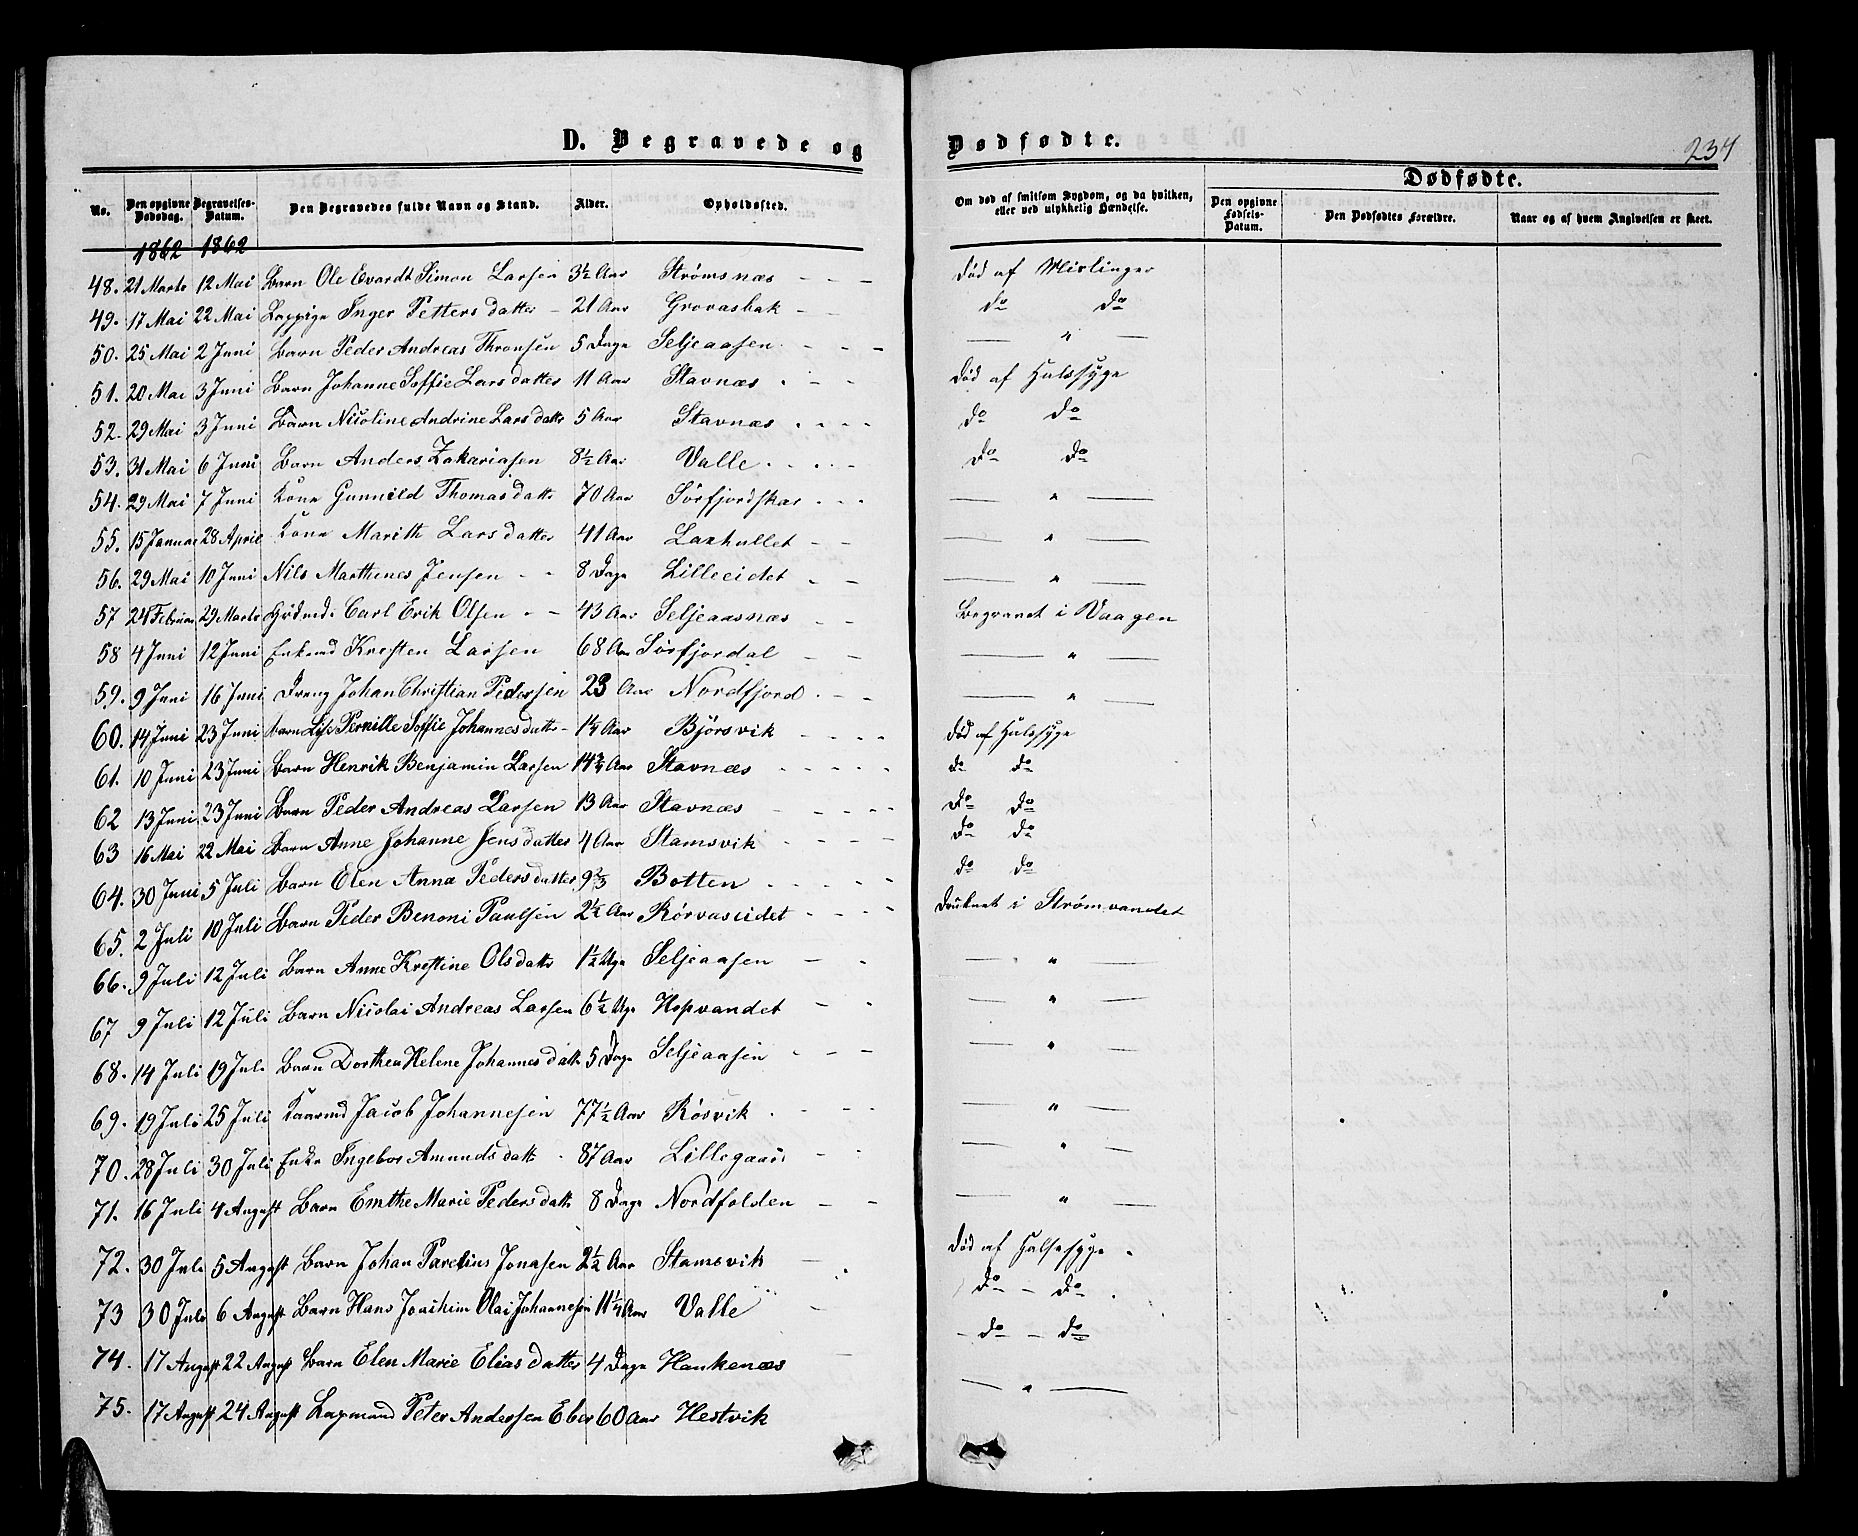 D. Begravede og Dødfødte.
234
No. Den opgivne Dødsdag. Begravelses-Datum. Den Begravedes fulde Navn og Stand. Alder. Opholdssted. Om død af smitsom Sygdom, og da hvilken, eller ved ulykkelig Hændelse. Dødfødte.
Den opgivne Fødsels-Datum. Den Dødfødtes Forældre. Naar og af hvem Angivelsen er skeet.
1862 1862
48. 21 Marts 12 Mai Barn Ole Evardt Simon Larsen 3½ Aar Strømsnæs - - død af Mislinger
49. 17 Mai 22 Mai Lappige Inger Petters datter - 21 Aar Grovasbak - - do do
50. 25 Mai 2 Juni Barn Peder Andreas Thronsen 5 Dage Seljeaasen - - - — " —
51. 20 Mai 3 Juni Barn Johanne Soffie Lars datter 11 Aar Stavnæs - - - død af Halssyge
52. 29 Mai 3 Juni Barn Nicoline Andrine Lars datter 5 Aar Stavnæs - - - do do
53. 31 Mai 6 Juni Barn Anders Zakariasen 8½ Aar Valle - - - do do
54. 29 Mai 7 Juni Kone Gunnild Thomas datter 70 Aar Sørfjordskar - - - — " —
55. 15 Januar 28 April Kone Marith Lars datter 41 Aar Laxhullet - - — " —
56. 29 Mai 10 Juni Nils Marthenes Jensen - - 8 Dage Lilleeidet - - — " —
57 24 Februar 29 Marts Huusmd. Carl Erik Olsen - - 43 Aar Seljeaasnæs - - Begravet i Vaagen
58 4 Juni 12 Juni Enkemd Kresten Larsen 68 Aar Sørfjordal - - — " —
59. 9 Juni 16 Juni Dreng Johan Christian Pedersen 23 Aar Nordfjord - - - — " —
60. 14 Juni 23 Juni Barn Lise Pernille Soffie Johannes datter - 1¼ Aar Bjørsvik - - - - død af Halssyge
61. 10 Juni 23 Juni Barn Henrik Benjamin Larsen 14¾ Aar Stavnæs - - - - - do do
62 13 Juni 23 Juni Barn Peder Andreas Larsen 13 Aar Stavnæs - - - - do do
63 16 Mai 22 Mai Barn Anne Johanne Jens datter 4 Aar Stamsvik - - - - do do
64. 30 Juni 5 Juli Barn Elen Anna Peders datter 9⅔ Botten - - - - - do do
65. 2 Juli 10 Juli Barn Peder Benoni Paulsen 2½ Aar Rørvaseidet - - - - Druknet i Strømvandet
66. 9 Juli 12 Juli Barn Anne Krestine Ols datter 1½ Uge Seljeaasen - - — " —
67 9 Juli 12 Juli Barn Nicolai Andreas Larsen 6½ Uge Hopvandet - - — " —
68. 14 Juli 19 Juli Barn Dorthea Helene Johannes datter 5 Dage Seljeaasen - - - — " —
69. 19 Juli 25 Juli Kaarmd Jacob Johannesen 77½ Aar Røsvik - - - — " —
70. 28 Juli 30 Juli Enke Ingebor Amunds datter - 87 Aar Lillegaard - - — " —
71. 16 Juli 4 August Barn Emthe Marie Peders datter 8 Dage Nordfolden - - — " —
72. 30 Juli 5 August Barn Johan Parelius Jonasen 2½ Aar Stamsvik - - død af Halsesyge -
73 30 Juli 6 August Barn Hans Joachim Olai Johannesen 11¼ Aar Valle - do - do -
74. 17 August 22 August Barn Elen Marie Elias datter 4 Dage Hankenæs - - do - do
75. 17 August 24 August Lapmand Peter Anderssen Eber 60 Aar Hestvik — " —